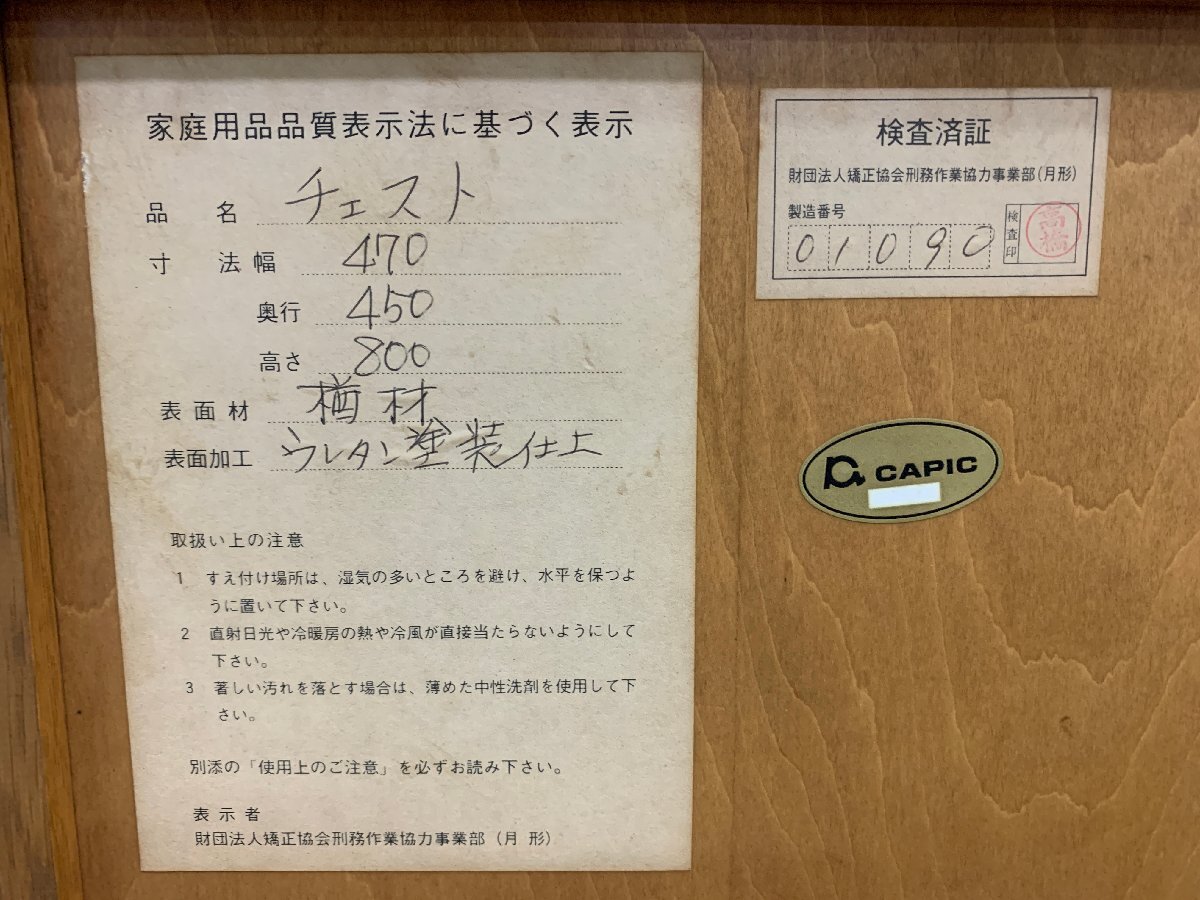 家庭用品品質表示法に基づく表示
品 名 チェスト
寸 法 幅 470
奥行 450
高さ 800
表面材 楢材
表面加工 ウレタン塗装仕上
取扱い上の注意
1 すえ付け場所は、湿気の多いところを避け、水平を保つよ
うに置いて下さい。
2 直射日光や冷暖房の熱や冷風が直接当たらないようにして
下さい。
3 著しい汚れを落とす場合は、薄めた中性洗剤を使用して下
さい。
別添の「使用上のご注意」を必ずお読み下さい。
表示者
財団法人矯正協会刑務作業協力事業部(月 形)
検査済証
財団法人矯正協会刑務作業協力事業部(月形)
製造番号
01090
検査印
高橋
CAPIC